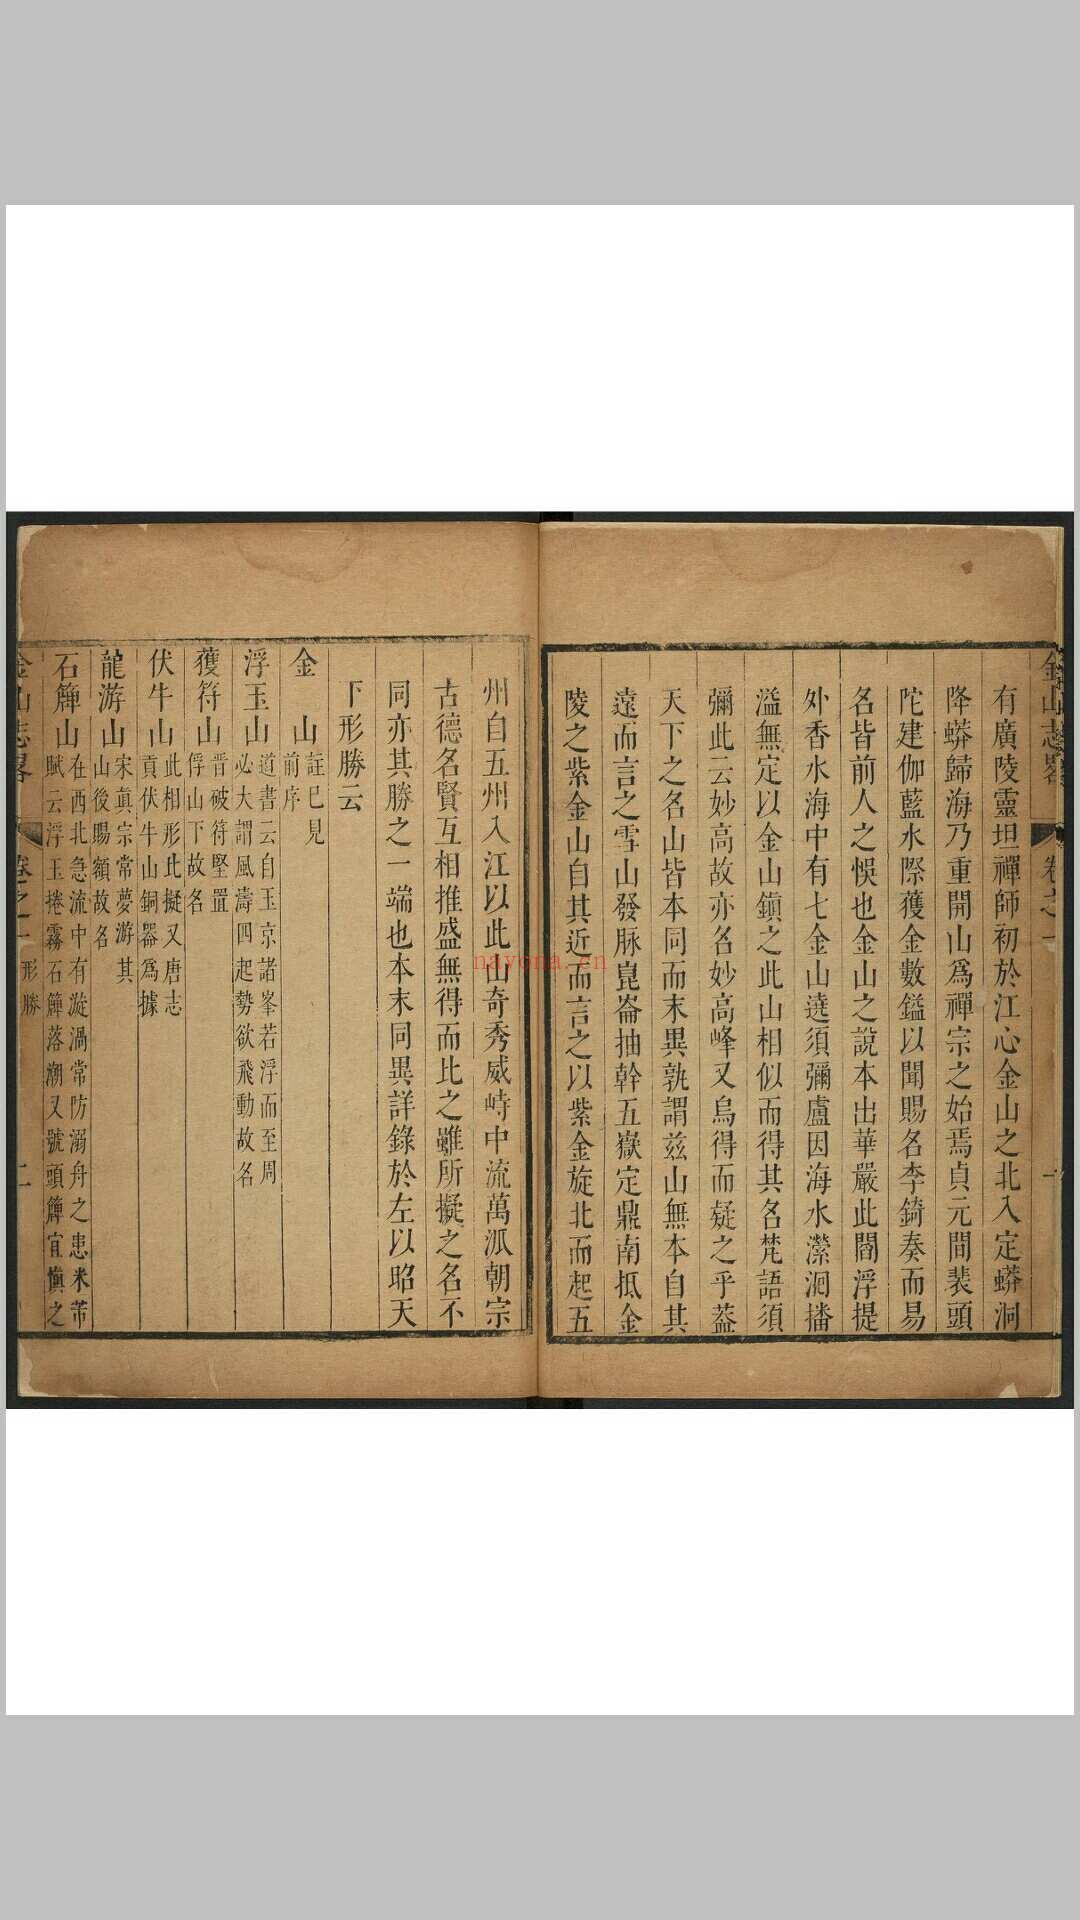 金山志畧 卷之一 一
有廣陵靈坦禪師初於江心金山之北入定蟒洞
降蟒歸海乃重開山爲禪宗之始焉貞元間裴頭
陀建伽藍水際獲金數鎰以聞賜名李錡奏而易
名皆前人之悞也金山之說本出華嚴此閻浮提
外香水海中有七金山遶須彌盧因海水瀠洄播
溢無定以金山鎮之此山相似而得其名梵語須
彌此云妙高故亦名妙高峰又烏得而疑之乎葢
天下之名山皆本同而末異孰謂兹山無本自其
遠而言之雪山發脉崑崙抽幹五嶽定鼎南抵金
陵之紫金山自其近而言之以紫金旋北而起五
州自五州入江以此山奇秀威峙中流萬派朝宗
古德名賢互相推盛無得而比之雖所擬之名不
同亦其勝之一端也本末同異詳錄於左以昭天
下形勝云
金 山 註已見
前序
浮玉山 道書云自玉京諸峯若浮而至周
必大謂風濤四起勢欲飛動故名
獲符山 晋破符堅置
俘山下故名
伏牛山 此相形此擬又唐志
貢伏牛山銅器爲據
龍游山 宋真宗常夢游其
山後賜額故名
石簰山 在西北急流中有漩渦常防溺舟之患米芾
賦云浮玉捲霧石簰落潮又號頭簰宜愼之
金山志畧 卷之一 形勝 二
nayona.cn